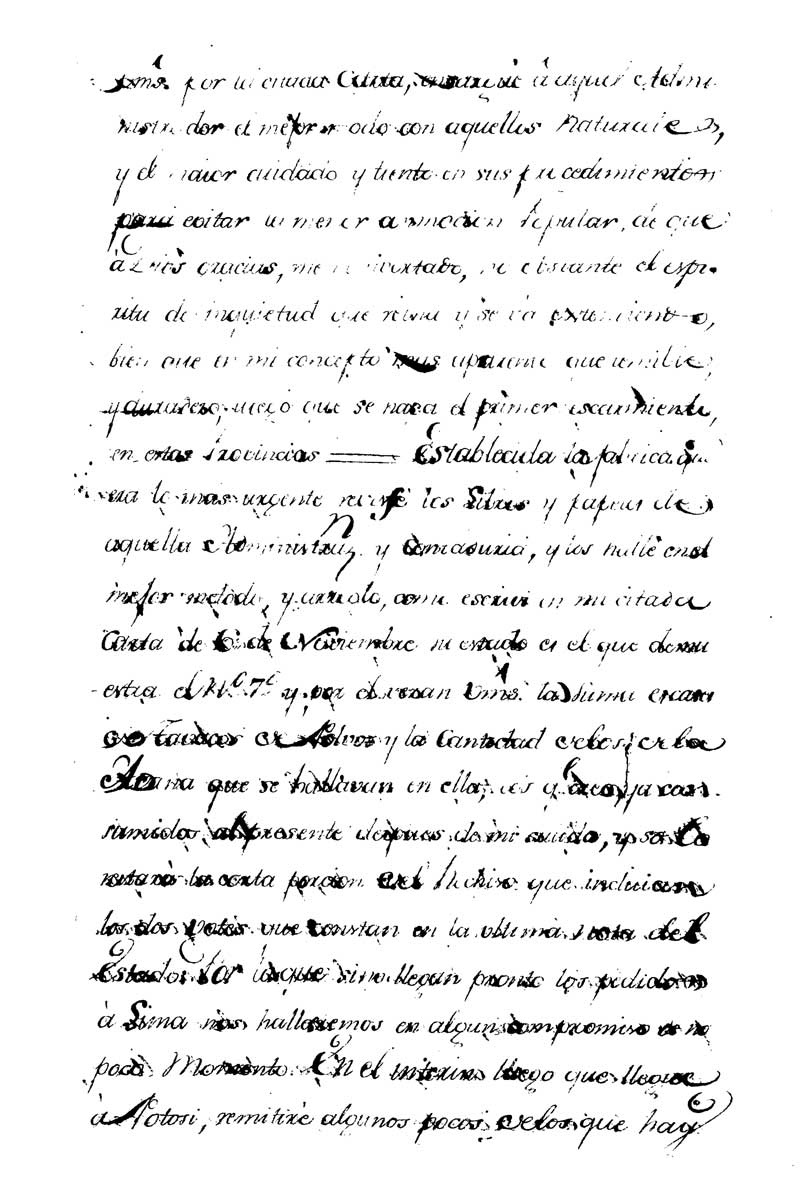 Vms. por la citada Carta, encargué á aquel Admi
nistrador el mejor modo con aquellos Naturales,
y el maior cuidado y tiento en sus procedimientos
para evitar la menor conmocion Popular, de que
á Dios gracias, me he livertado, no obstante el espi-
ritu de inquietud que reina y se va extendiendo,
bien que en mi concepto mas aparente que temible,
y duradero, luego que se haga el primer escarmiento,
en estas Provincias Establecida la fabrica que
era lo mas urgente los Libros y papeles de
aquella Administraz.n y Tomaduria, y los hallé en el
mejor metodo, y arreglo, como escrivi en mi citada
Carta de 6 de Noviembre su estado es el que demu
estra el N.º 7.º y por él veran Vms. la suma
Tavacos de Polvos y la Cantidad de los de la
Havana que se hallavan en ella, ya con-
sumidos al presente despues de mi salida, y solo
restará la corta porcion del que incluian
los dos votes que constan en la ultima nota del
Estado: Por lo que sino llegan pronto los pedidos
á Lima nos hallaremos en algun compromiso de no
poco Momento. En el interin luego que llegue
á Potosi, remitiré algunos pocos de los que hay